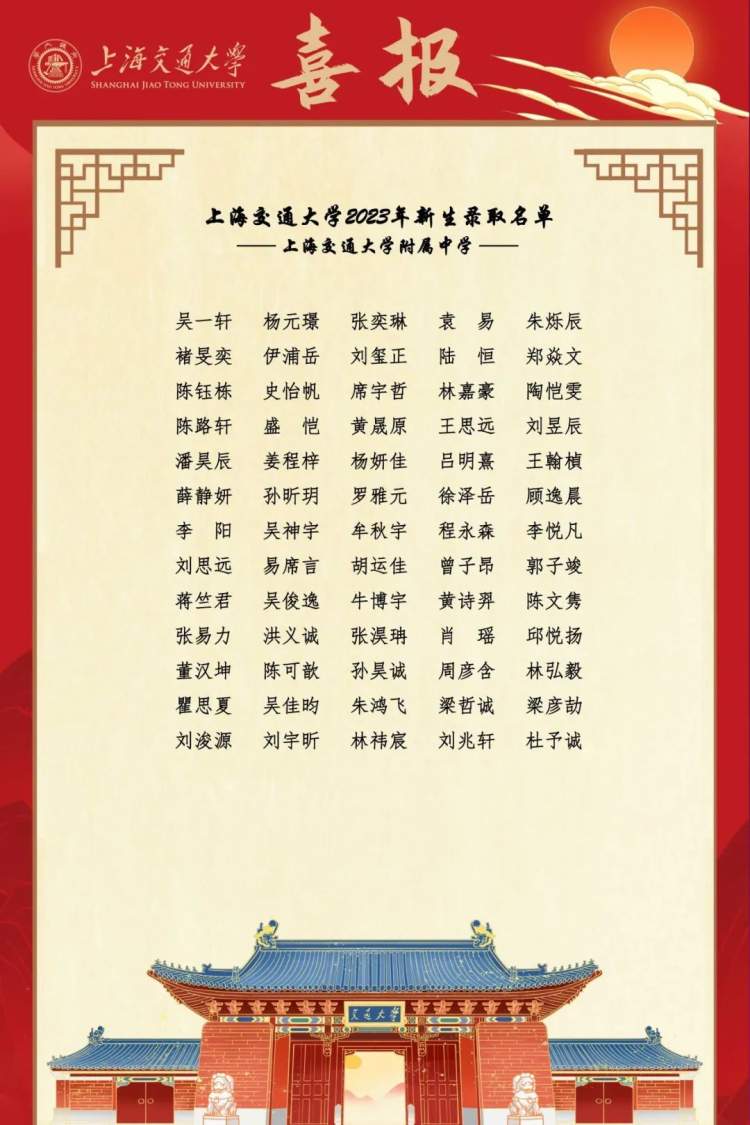 上海交通大学
SHANGHAI JIAO TONG UNIVERSITY
喜报
上海交通大学2023年新生录取名单
上海交通大学附属中学
吴一轩 杨元璟 张奕琳 袁易 朱烁辰
褚旻奕 伊浦岳 刘玺正 陆恒 郑焱文
陈钰栋 史怡帆 席宇哲 林嘉豪 陶恺雯
陈路轩 盛恺 黄晟原 王思远 刘昱辰
潘昊辰 姜程梓 杨妍佳 吕明熹 王翰楨
薛静妍 孙昕玥 罗雅元 徐泽岳 顾逸晨
李阳 吴神宇 牟秋宇 程永森 李悦凡
刘思远 易席言 胡运佳 曾子昂 郭子竣
蒋竺君 吴俊逸 牛博宇 黄诗羿 陈文隽
张易力 洪义诚 张淏冉 肖瑶 邱悦扬
董汉坤 陈可歆 孙昊诚 周彦含 林弘毅
瞿思夏 吴佳昀 朱鸿飞 梁哲诚 梁彦劼
刘浚源 刘宇昕 林祎宸 刘兆轩 杜予诚
交通大学